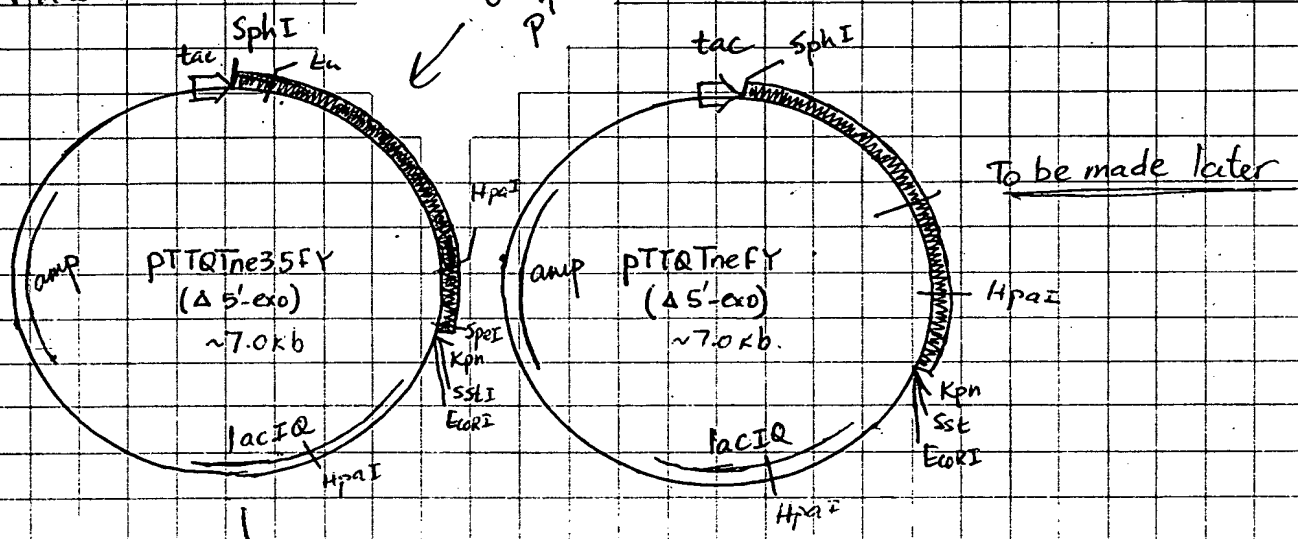 P
SphI
tac
HpaI
amp
pTTQTne35FY
(Δ 5'-exo)
~7.0kb
SpeI
Kpn
SstI
EcoRI
lacIQ
HpaI
tac
SphI
To be made later
amp
pTTQTneFY
(Δ 5'-exo)
~7.0kb.
HpaI
Kpn
Sst
EcoRI
lacIQ
HpaI